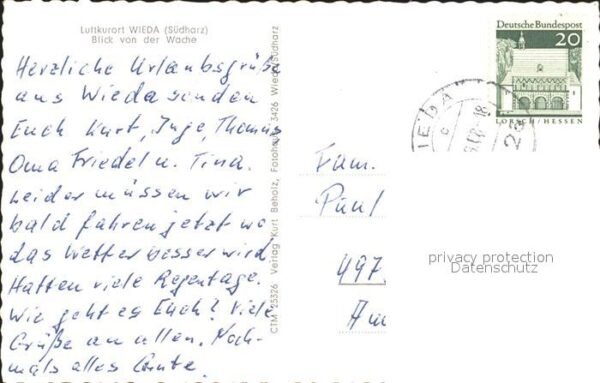 Luftkurort WIEDA (Südharz)
Blick von der Wache
Herzliche Urlaubsgrüße
aus Wieda senden
Euch Kurt, Inge, Thomas
Oma Friedel u. Tina.
Leider müssen wir
bald fahren jetzt wo
das Wetter besser wird
Hatten viele Regentage.
Wie geht es Euch? Viele
Grüße an allen. Noch-
mals alles Gute.
CTM 25326 Verlag Kurt Beholz, Fotohaus, 3426 Wieda/Südharz
Deutsche Bundespost
20
LORSCH / HESSEN
WIEDA
Fam.
Paul
497
Am
privacy protection
Datenschutz